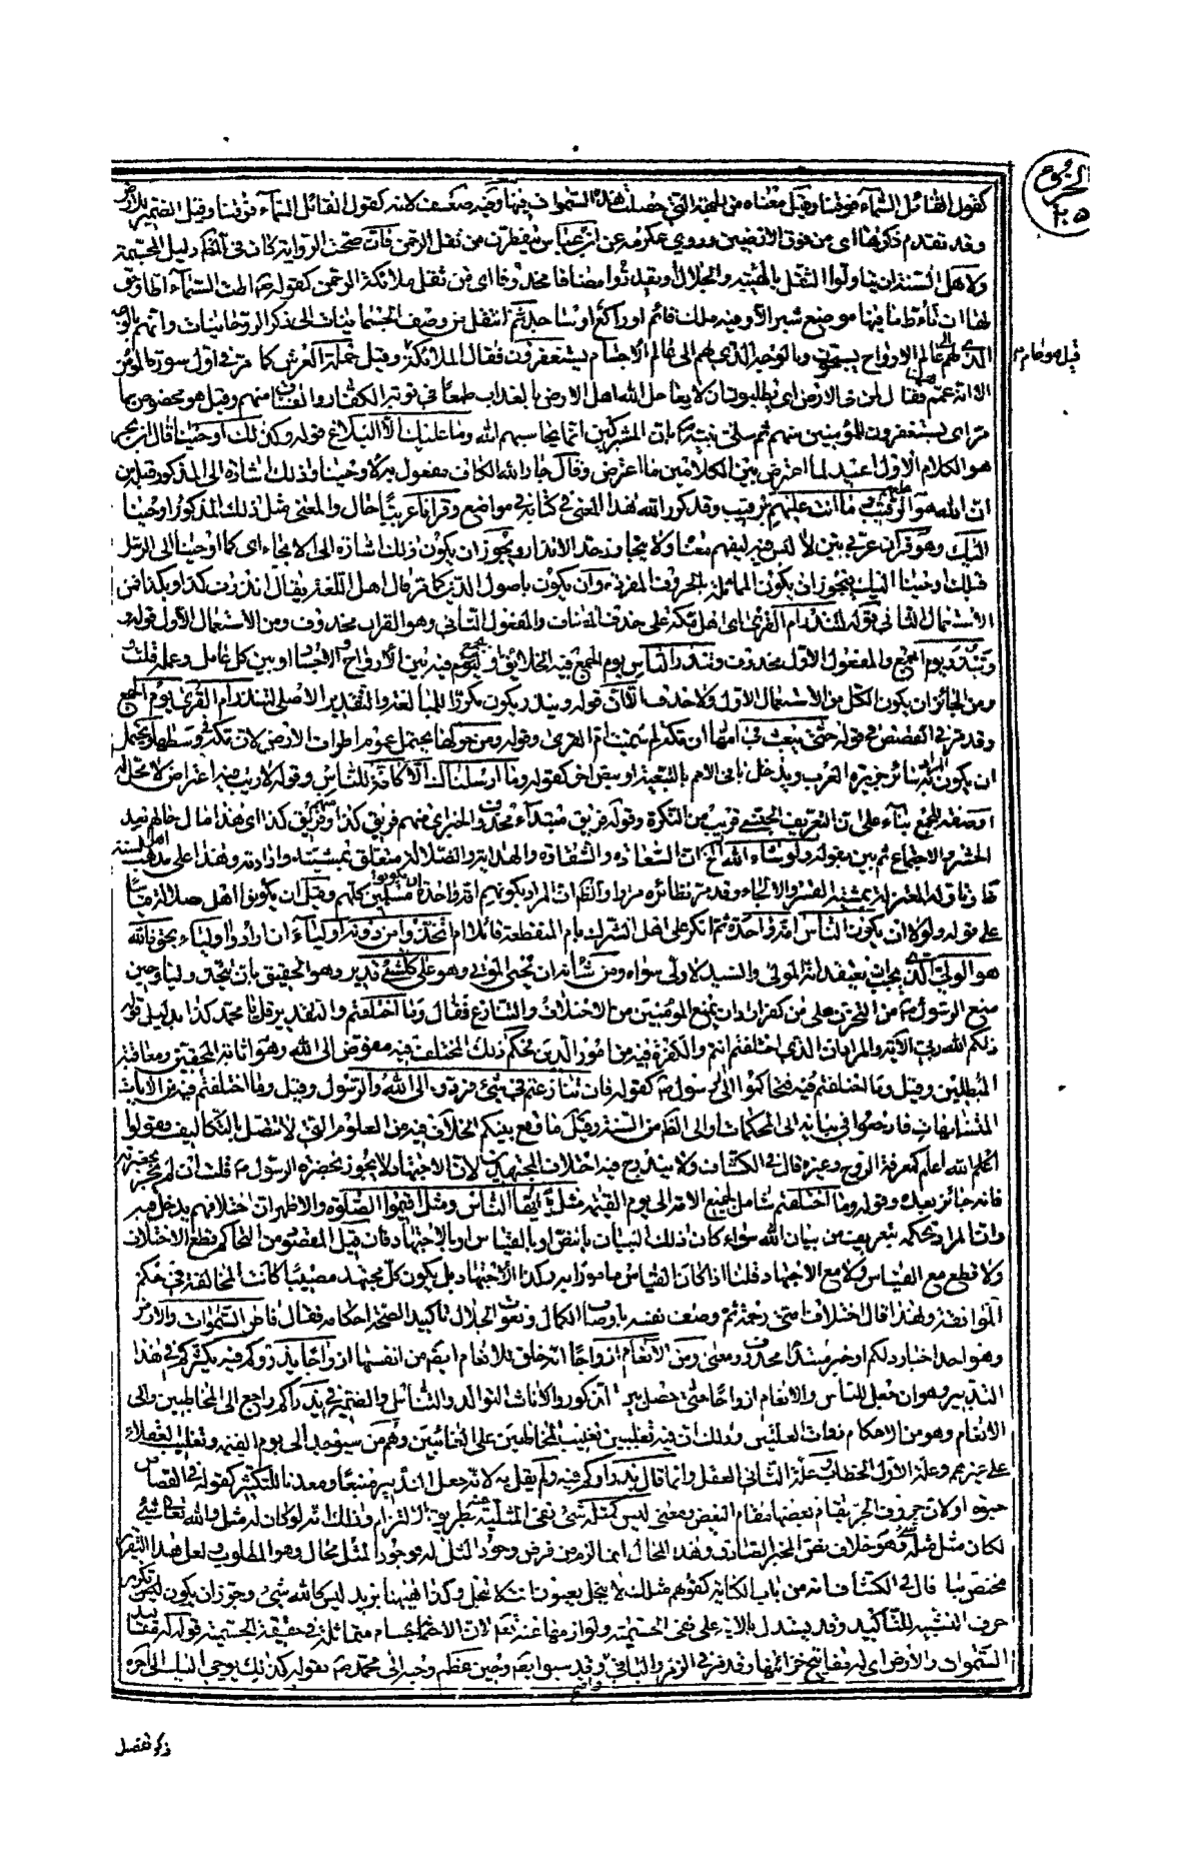 الجزو ٢٥
كقول القائل السماء فوقنا وقيل معناه من الجهة التي حصلت هذه السموات فيها وفيه ضعف لانه كقول القائل السماء فوقنا وقيل الضمير للارض
وقد تقدم ذكرها اى من فوق الارضين وروي عكرمة عن ابن عباس يتفطرن من ثقل الرحمن فان صحت الرواية كان في الظاهر دليل المجسمة
ولاهل السنة ان يتاولوا الثقل بالهيبة والجلال او يقدروا مضافا محذوفا اى من ثقل ملائكة الرحمن كقوله ص اطت السماء اطا وحق
لها ان تأط ما فيها موضع شبر الا وفيه ملك قائم او راكع او ساجد ثم انتقل من وصف الجسمانيات الى ذكر الروحانيات وانهم بالوجه
الذي لهم الى عالم الارواح يسبحون وبالوجه الذي لهم الى عالم الاجسام يستغفرون فقال والملائكة وقيل حملة العرش كما مر في اول سورة المؤمن
قيل هو عام
الا انه عمم فقال لمن في الارض اى يطلبون ان لا يعاجل الله اهل الارض بالعذاب طمعا في توبة الكفار والفساق منهم وقيل هو مخصوص بما
مر اى يستغفرون للمؤمنين منهم ثم سلى نبيه بان المشركين انما يحاسبهم الله وما عليك الا البلاغ قوله وكذلك اوحينا قال ابن بحر
هو الكلام الاول اعيد لما اعترض بين الكلامين ما اعترض وقال جار الله الكاف مفعول به لاوحينا وذلك اشارة الى المذكور قبله من
ان الله هو الرقيب عليهم ما انت عليهم برقيب وقد كرر الله هذا المعنى في كتابه في مواضع وقرانا عربيا حال والمعنى مثل ذلك المذكور اوحينا
اليك وهو قران عربي بين لا لبس فيه ليفهم معناه ولا يتجاوز حد الانذار ويجوز ان يكون ذلك اشارة الى الايحاء اى كما اوحينا الى الرسل
قبلك اوحينا اليك فيجوز ان يكون المماثلة بالحروف المفردة وان يكون باصول الدين كما مر قال اهل اللغة يقال انذرت كذا وبكذا فمن
الاستعمال الثاني قوله لتنذر ام القرى اى اهل مكة على حذف المضاف والمفعول الثاني وهو القران محذوف ومن الاستعمال الاول قوله
وتنذر يوم الجمع والمفعول الاول محذوف وتنذر الناس يوم الجمع فيه الخلائق او يجمع فيه بين الارواح والاجساد او بين كل عامل وعمله قلت
ومن الجائز ان يكون الكل من الاستعمال الاول ولا حذف الا ان قوله وتنذر يكون مكررا للمبالغة والتقدير الاصلي لتنذر ام القرى يوم الجمع
وقد مر في القصص في قوله حتى يبعث في امها ان مكة لم سميت ام القرى وقوله ومن حولها يحتمل عموم اطراف الارض لان مكة في وسطها ويحتمل
ان يكون المراد سائر جزيرة العرب ويدخل باقي الامم بالتبعية او بنص اخر كقوله وما ارسلناك الا كافة للناس وقوله لا ريب فيه اعتراض لا محل له
او صفة للجمع بناء على ان التعريف الجنسي قريب من النكرة وقوله فريق مبتدأ محذوف الخبر اى منهم فريق كذا وفريق كذا اى هذا مآل حالهم بعد
الحشر والاجتماع ثم بين بقوله ولو شاء الله الخ ان السعادة والشقاوة والهداية والضلالة متعلق بمشيته وارادته وهذا على مذهب اهل السنة
ظاهر وتاوله المعتزلة بمشية القسر والالجاء وقد مر نظائره مرارا والظاهر ان المراد بكونهم امة واحدة ان يكونوا مسلمين كلهم وقيل ان يكونوا اهل ضلالة
على قوله ولولا ان يكون الناس امة واحدة ثم انكر على اهل الشرك بام المنقطعة قائلا ام اتخذوا من دونه اولياء ان ارادوا اولياء بحق فالله
هو الولي الذي يجب ان يعتقد انه المولى والسيد لا ولي سواه ومن شأنه ان يحيي الموتى وهو على كل شيء قدير وهو الحقيق بان يتخذ وليا وحين
منع الرسول ص من التحزن على من كفر اراد ان يمنع المؤمنين من الاختلاف والتنازع فقال وما اختلفتم والتقدير قل يا محمد كذا بدليل قوله
ذلكم الله ربي الآية والمراد ان الذي اختلفتم انتم والكفرة فيه من امور الدين فحكم ذلك المختلف فيه مفوض الى الله وهو اثابة المحقين ومعاقبة
المبطلين وقيل وما اختلفتم فيه فتحاكموا الى الرسول ص كقوله فان تنازعتم في شيء فردوه الى الله والرسول وقيل وما اختلفتم فيه من الآيات
المتشابهات فارجعوا في بيانه الى المحكمات او الى الظاهر من السنة وقيل ما وقع بينكم الخلاف فيه من العلوم التي لا تتصل بالتكاليف فقولوا
الله اعلم كمعرفة الروح وغيره قال في الكشاف ولا يندرج فيه اختلاف المجتهدين لان الاجتهاد لا يجوز بحضرة الرسول ص قلت ان لم يجز بحضرته
فانه جائز بعده وقوله وما اختلفتم شامل لجميع الامة الى يوم القيمة مثل يا ايها الناس ومثل اقيموا الصلوة والاظهر ان اختلافهم يدخل فيه
وان المراد تحكمه تعريفه من بيان الله سواء كان ذلك البيان بالنص او بالقياس او بالاجتهاد فان قيل المقصود من التحاكم قطع الاختلاف
ولا قطع مع القياس ولا مع الاجتهاد قلنا اذا كان القياس مأمورا به وكذا الاجتهاد بل يكون كل مجتهد مصيبا كانت المخالفة في حكم
الموافقة ولهذا قال اختلاف امتي رحمة ثم وصف نفسه باوصاف الكمال ونعوت الجلال تاكيدا لصحة احكامه فقال فاطر السموات والارض
وهو احد اخبار ذلكم او خبر مبتدأ محذوف ومعنى ومن الانعام ازواجا انه خلق للانعام ايضا من انفسها ازواجا يذرؤكم فيه يكثركم في هذا
التدبير وهو ان جعل للناس والانعام ازواجا حتى حصل بين الذكور والاناث التوالد والتناسل والضمير في يذرأكم راجع الى المخاطبين والى
الانعام وهو من الاحكام ذوات العلتين وذلك ان فيه تغليبين تغليب المخاطبين على الغائبين وهم من سيوجد الى يوم القيمة وتغليب العقلاء
على غيرهم وعلة الاول الخطاب وعلة الثاني العقل وانما قال يذرؤكم فيه ولم يقل به لانه جعل التدبير منبعا ومعدنا للتكثير كقوله في القصاص
حيوة او لان حروف الجر يقام بعضها مقام البعض ومعنى ليس كمثله شيء نفي المثلية عنه بطريق الالتزام وذلك انه لو كان له مثل والله تعالى شيء
لكان مثل مثله شيء وهو خلاف نص المخبر الصادق وهذا المحال انما لزم من فرض وجود المثل له فوجود المثل محال وهو المطلوب ولعل هذا التقرير
مختص بنا قال في الكشاف انه من باب الكناية كقولهم مثلك لا يبخل يعنون انك لا تبخل وكذا ههنا يريد ليس كالله شيء وجوز ان يكون تكرير
حرف التشبيه للتأكيد وقد يستدل بالآية على نفي الجسمية ولوازمها عنه تعالى لان الاجسام متماثلة في حقيقة الجسمية قوله له مقاليد
السموات والارض اى له مفاتيح خزائنها وقد مر في الزمر والباقي واضح وقد سبق ايضا وحين عظم وحيه الى محمد ص بقوله كذلك يوحي اليك الى آخره
ذكر تفصيل